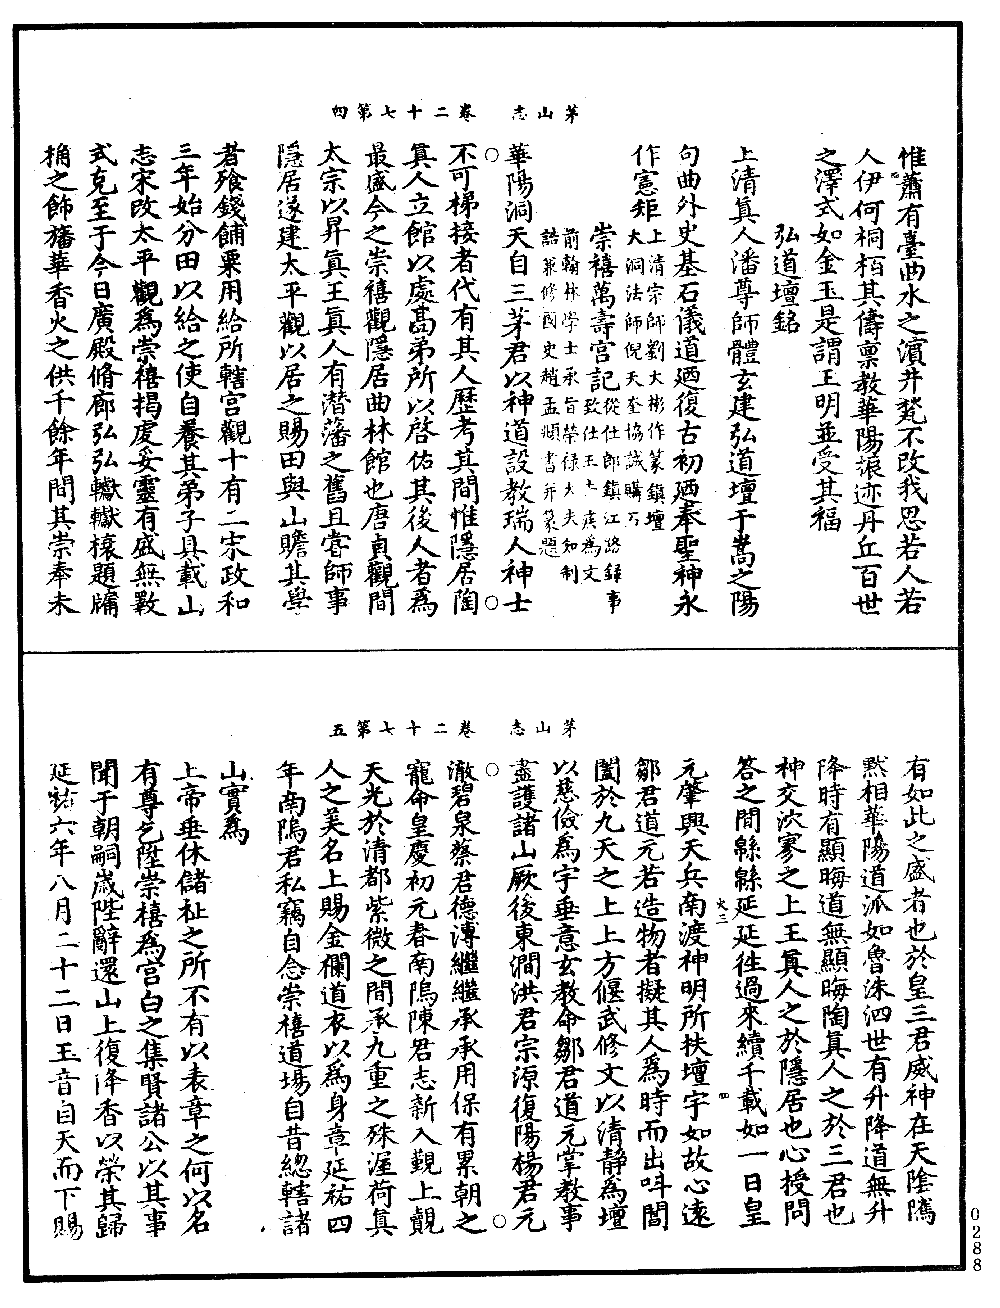 茅山志　卷二十七第四
惟蕭有臺曲水之濱井甃不改我思若人若
人伊何祠栢其儔稟教華陽振迹丹丘百世
之澤式如金玉是謂王明並受其福
弘道壇銘
上清真人潘尊師體玄建弘道壇于嵩之陽
句曲外史基石儀道廼復古初廼奉聖神永
作憲矩上清宗師劉大彬作篆鎮壇
大洞法師倪天奎協誠購丂
崇禧萬壽宮記從仕郎鎮江路録事
致仕王去疾為文
前翰林學士承旨榮祿大夫知制
誥兼修國史趙孟頫書并篆題
華陽洞天自三茅君以神道設教瑞人神士
不可梯接者代有其人歷考其間惟隱居陶
真人立館以處曷弟所以啓佑其後人者為
最盛今之崇禧觀隱居曲林館也唐貞觀間
太宗以昇真王真人有潜藩之舊且嘗師事
隱居遂建太平觀以居之賜田與山贍其學
者飱錢餔粟用給所轄宮觀十有二宋政和
三年始分田以給之使自養其弟子具載山
志宋改太平觀為崇禧揭虔妥靈有盛無斁
式克至于今日廣殿脩廊弘弘轍轍榱題牖
桷之飾旛華香火之供千餘年間其崇奉未
茅山志　卷二十七第五
有如此之盛者也於皇三君威神在天陰騭
黙相華陽道派如魯洙泗世有升降道無升
降時有顯晦道無顯晦陶真人之於三君也
神交泬寥之上王真人之於隱居也心授問
答之間緜緜延延往過來續千載如一日皇
火二
四
元肇興天兵南渡神明所扶壇宇如故心遠
鄒君道元若造物者擬其人為時而出呌閽
闔於九天之上上方偃武修文以清静為壇
以慈儉為宇垂意玄教命鄒君道元掌教事
盡護諸山厥後東澗洪君宗源復陽楊君元
澈碧泉蔡君德溥繼繼承承用保有累朝之
寵命皇慶初元春南塢陳君志新入覲上覿
天光於清都紫微之間承九重之殊渥荷真
人之美名上賜金襴道衣以為身章延祐四
年南塢君私竊自念崇禧道場自昔緫轄諸
山實為
上帝垂休儲祉之所不有以表章之何以名
有尊乞陞崇禧為宮白之集賢諸公以其事
聞于朝嗣歳陛辭還山上復降香以榮其歸
延祐六年八月二十二日玉音自天而下賜
0288